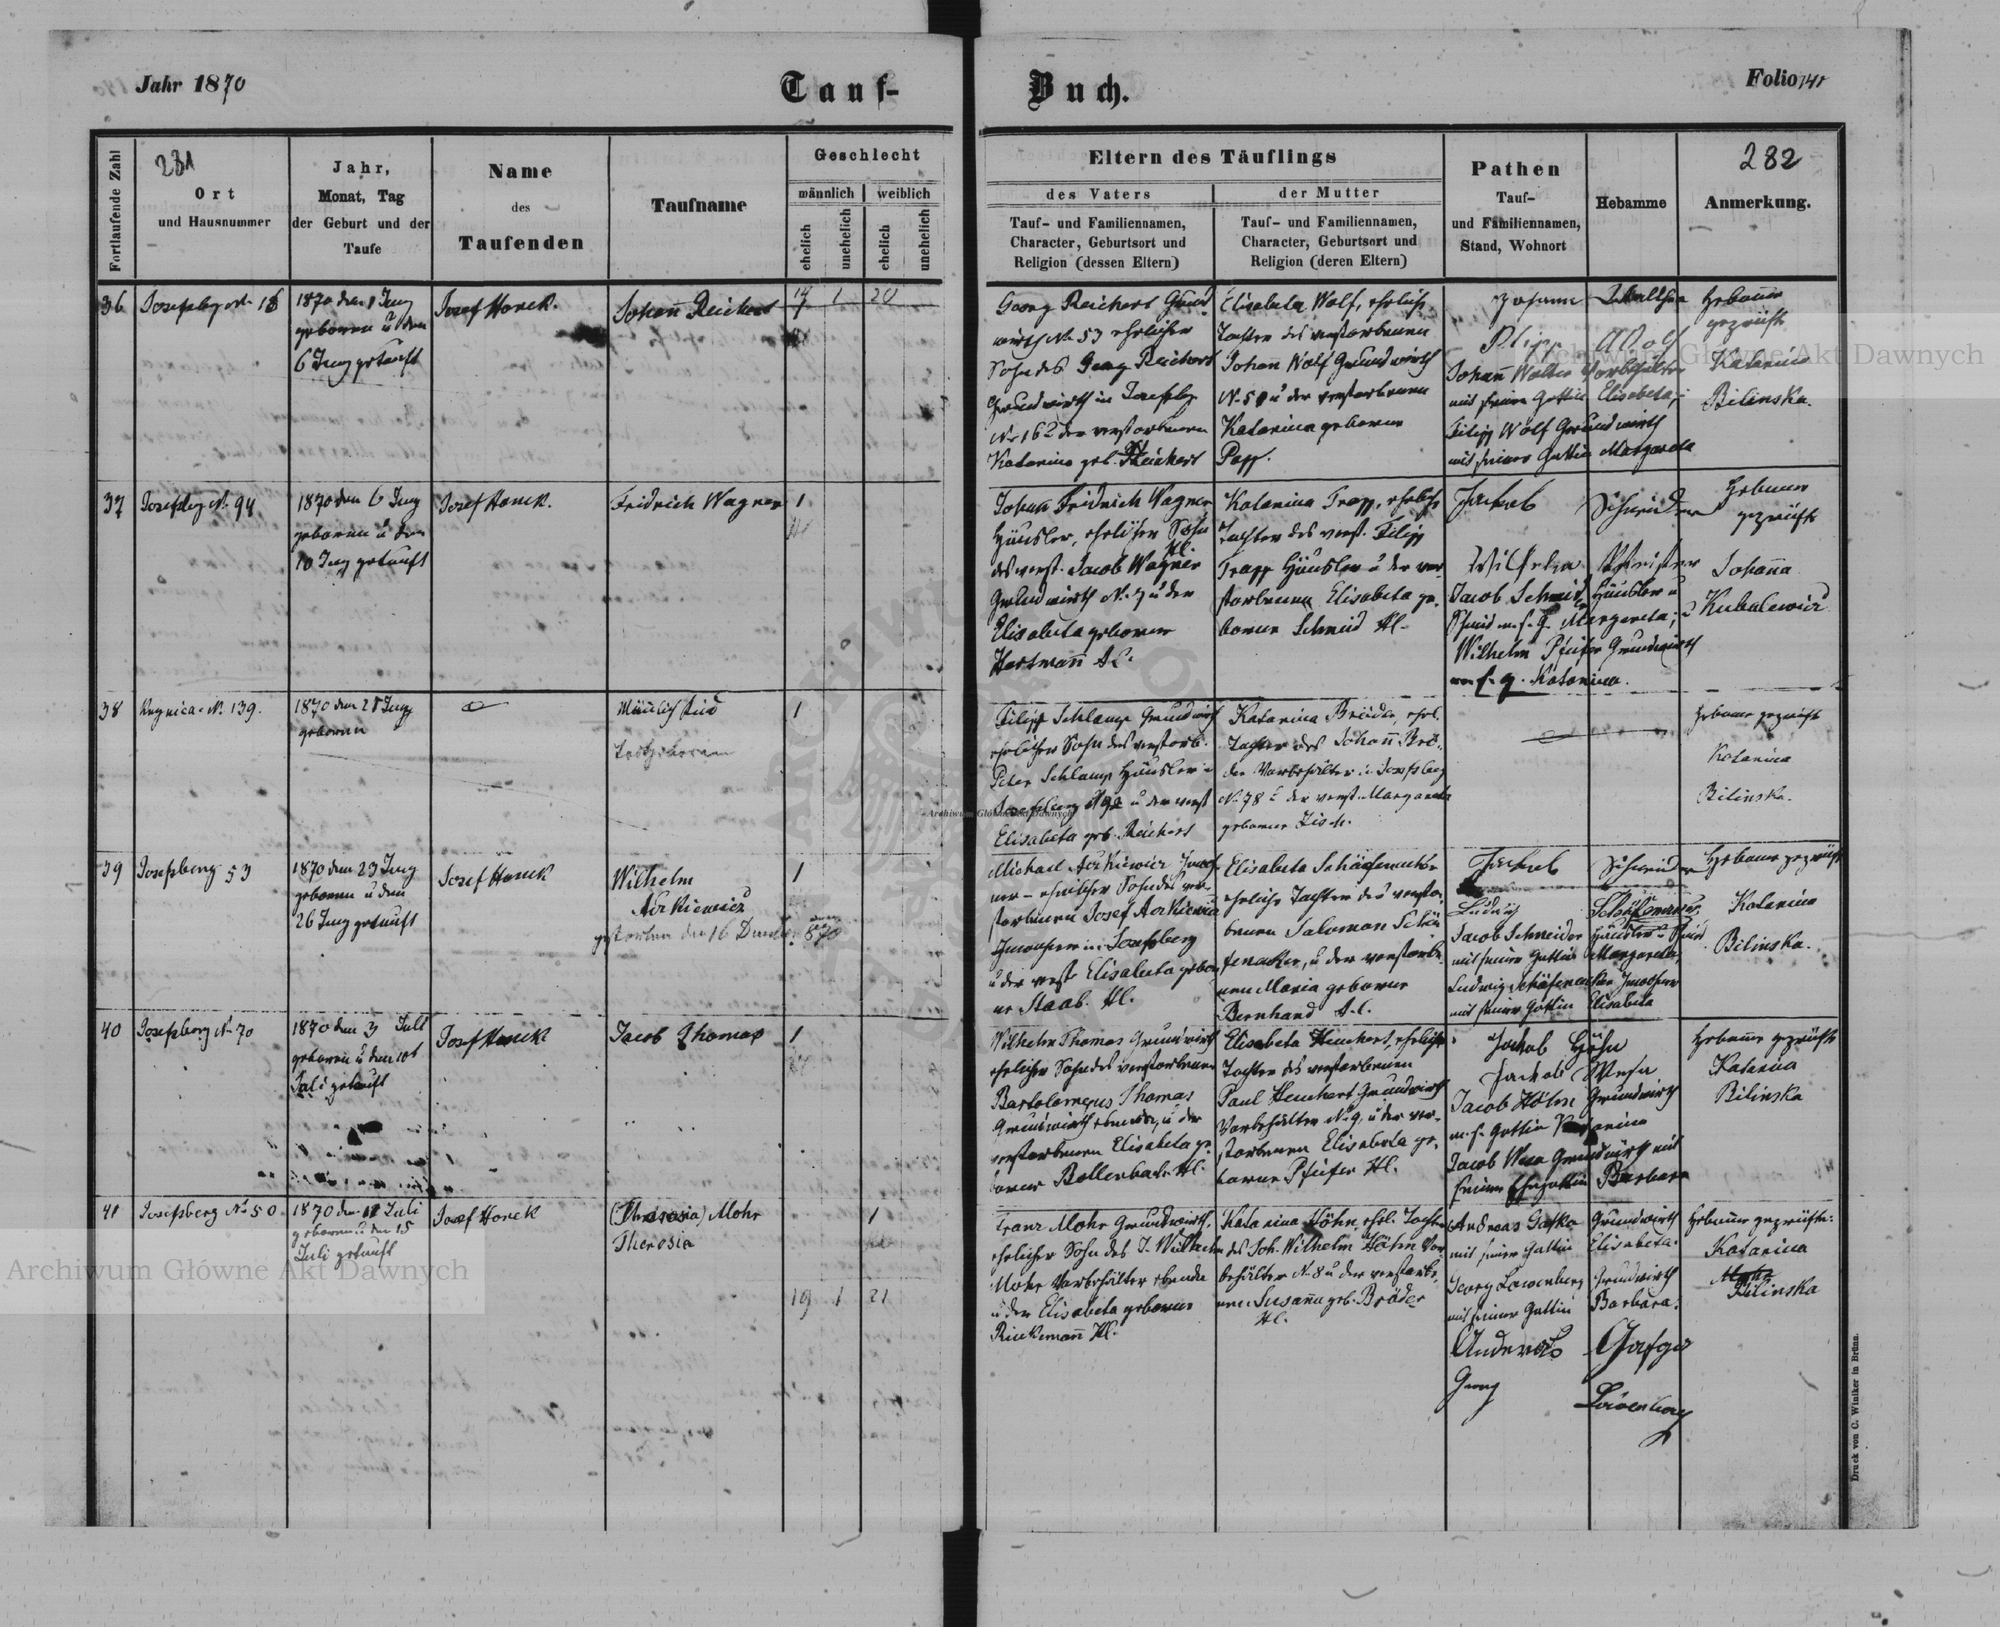 Jahr 1870
Tauf-
Buch.
Folio 141
Fortlaufende Zahl
231
Ort
und Hausnummer
Jahr,
Monat, Tag
der Geburt und der
Taufe
Name
des
Taufenden
Taufname
Geschlecht
männlich
weiblich
ehelich
unehelich
ehelich
unehelich
Eltern des Täuflings
des Vaters
der Mutter
Tauf- und Familiennamen,
Character, Geburtsort und
Religion (dessen Eltern)
Tauf- und Familiennamen,
Character, Geburtsort und
Religion (deren Eltern)
Pathen
Tauf-
und Familiennamen,
Stand, Wohnort
Hebamme
282
Anmerkung.
36
Josefsbg
1870 den 1 Juny
geboren u den
6 Juny getauft
Josef Horek.
Johann Reichert
17 1 20
Georg Reichert Grund
wirth N. 53 ehelicher
Sohn des Georg Reichert
Grundwirth in Josefsbg
N. 16 u der verstorbenen
Katarina geb. Reichert
Elisabeta Wolf, eheliche
Tochter des verstorbenen
Johann Wolf Grundwirth
u der verstorbenen
Katarina geborne
Popp.
Johann
Johann Walter Vorbehälter
mit seiner Gattin Elisabeta;
Filipp Wolf Grundwirth
mit seiner Gattin Margareta
Hebamme
geprüft
Katarina
Bilinska.
37
Josefsbg N. 94
1870 den 6 Juny
geboren u den
10 Juny getauft
Josef Horek.
Fridrich Wagner
1
Johann Fridrich Wagner
Häusler, ehelicher Sohn
des verst. Jacob Wagner
Grundwirth N. 7 u der
Elisabeta geborne
Hartmann
Katarina Trapp, eheliche
Tochter des verst. Filipp
Trapp Häusler u der ver-
storbenen Elisabeta ge-
borne Schmid Hl.
Jackob Schneider
Wilhelm
Jacob Schneider Häusler u
Schmid m. s. G. Margareta; u
Wilhelm Pfeifer Grundwirth
m. s. g. Katarina.
Hebamme
geprüft
Johanna
Kubalewicz
38
N. 139.
1870 den 21 Juny
geboren
Männlich Kind
Todtgeboren
1
Filipp Schlamp Grundwirth
ehelicher Sohn des verstorb.
Peter Schlamp Häusler in
Josefsberg u der verst
Elisabeta geb. Reichert
Katarina Bröder, ehel.
Tochter des Johann Brö-
der Vorbehälter in Josefsberg
N. 78 u der verst. Margareta
geborne
Hebamme geprüft
Katarina
Bilinska.
39
Josefsberg 53
1870 den 23 Juny
geboren u den
26 Juny getauft
Josef Horek
Wilhelm
gestorben den 16 Dember 870
1
Michael
ehelicher Sohn des ver-
storbenen Josef
Inwohner in Josefsberg
u der verst Elisabeta gebor-
ne Staab. Hl.
Elisabeta Schäfenacker
eheliche Tochter des verstor-
benen Salomon Schä-
fenacker, u der verstorbe-
nen Maria geborne
Bernhard
Jackob Schneider
Ludwig
Jacob Schneider Häusler u Schmid
mit seiner Gattin Margareta,
Ludwig Schäfenacker Inwohner
mit seiner Gattin Elisabeta
Hebamme geprüft
Katarina
Bilinska.
40
Josefsberg N. 70
1870 den 3 Juli
geboren u den 10t
Juli getauft
Josef Horek
Jacob Thomas
1
Wilhelm Thomas Grundwirth
ehelicher Sohn des verstorbenen
Bartolomeus Thomas
Grundwirth ebenda, u der
verstorbenen Elisabeta ge-
borne Bollenbach Hl.
Elisabeta Heuchert, eheliche
Tochter des verstorbenen
Paul Heuchert Grundwirth
Vorbehälter N. 9, u der ver-
storbenen Elisabeta ge-
borne Pfeifer Hl.
Jakob Höhn
Jackob Wesa
Jacob Höhn Grundwirth
m. s. Gattin Katarina
Jacob Wesa Grundwirth mit
seiner Ehegattin Barbara
Hebamme geprüft
Katarina
Bilinska
41
Josefsberg N. 50
1870 den 11 Juli
geboren u den 15
Juli getauft
Josef Horek
(Theresia) Mohr
Theresia
1
19 1 21
Franz Mohr Grundwirth,
ehelicher Sohn des J. Wilhelm
Mohr Vorbehälter ebenda
u der Elisabeta geborne
Rinkemann Hl.
Katarina Höhn, ehel. Tochter
des Joh. Wilhelm Höhn Vor-
behälter N. 8 u der verstorbe-
nen Susanna geb. Bröder
Hl.
Andreas Gafko Grundwirth
mit seiner Gattin Elisabeta.
Georg Lawenberg Grundwirth
mit seiner Gattin Barbara.
Georg
Hebamme geprüfte:
Katarina
Bilinska
Archiwum Główne Akt Dawnych
Archiwum Główne Akt Dawnych
Archiwum Główne Akt Dawnych
Druck von C. Winiker in Brünn.